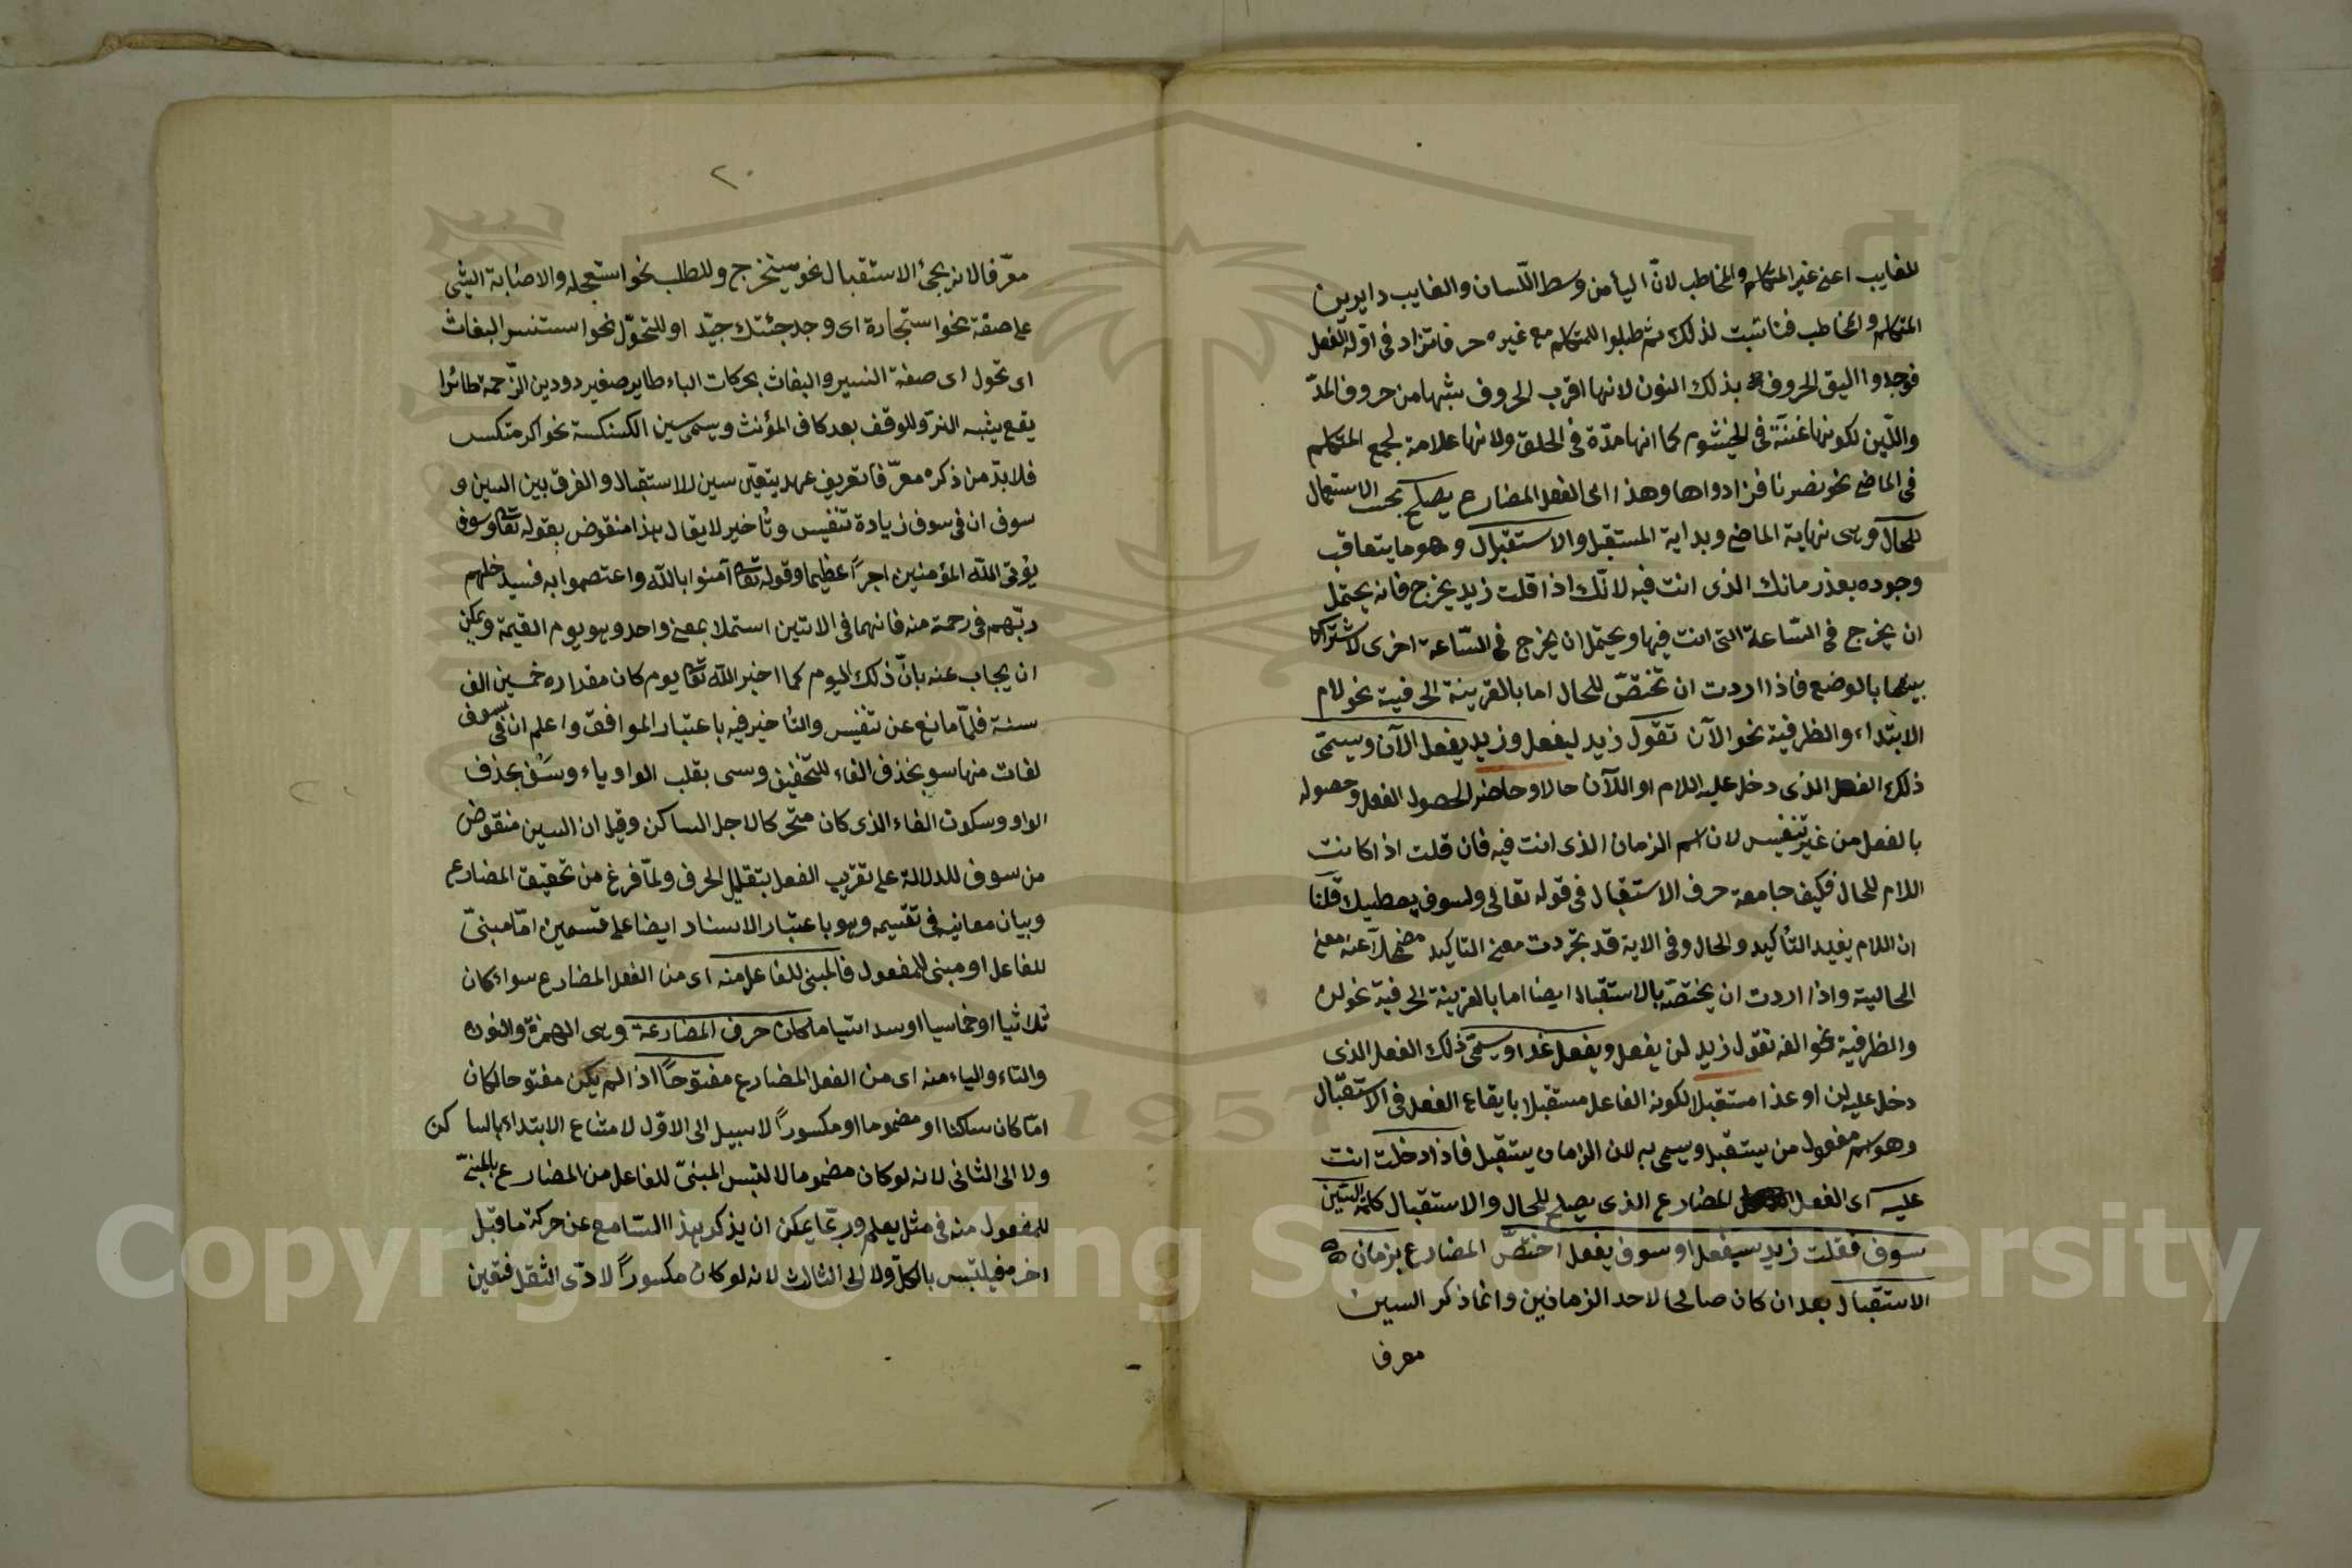 للغايب اعنى غير المتكلم والمخاطب لانّ اليأ من وسط اللّسان والغايب دايربين
المتكلم والمخاطب فناسبت لذلك ثم طلبوا للمتكلم مع غيره حرفا تزاد فى اوّله الفعل
فوجدوا اليق الحروف بذلك النون لانها اقرب الحروف شبها من حروف المدّ
واللّين لكونها غنّة فى الخيشوم كما انها مدّة فى الحلق ولانها علامة لجمع المتكلم
فى الماضى نحو نصرنا فزادواها وهذا اى الفعل المضارع يصلح بحسب الاستعمال
للحال وهى نهاية الماضى وبداية المستقبل والاستقبال وهو ما يتعاقب
وجوده بعد زمانك الذى انت فيه لانّك اذا قلت زيد يخرج فانه يحتمل
ان يخرج فى السّاعة التى انت فيها ويحتمل ان يخرج فى السّاعة اخرى لاشتراك
بينهما بالوضع فاذا اردت ان تختصّ للحال اما بالقرينة الحرفية نحو لام
الابتداء والظرفية نحو الآن تقول زيد ليفعل وزيد يفعل الآن ويسمّى
ذلك الفعل الذى دخل عليه اللام او اللآن حالا وحاضرا لحصول الفعل وحصوله
بالفعل من غير تنفيس لان اسم الزمان الذى انت فيه فان قلت اذا كانت
اللام للحال فكيف جامعة حرف الاستقبال فى قوله تعالى ولسوف يعطيك قلنا
ان اللام يفيد التأكيد والحال وفى الاية قد تجّردت معنى التاكيد مضمحلاّ عنه معنى
الحالية واذا اردت ان يختصّه بالاستقبال ايضا اما بالقرينة الحرفية نحو لن
والظرفية نحو الغد تقول زيد لن يفعل ويفعل غدا ويسمّى ذلك الفعل الذى
دخل عليه لن او غدا مستقبلا لكونه الفاعل مستقبلا بايقاع الفعل فى الاستقبال
وهو اسم مفعول من يستقبل ويسمى به لان الزمان يستقبل فاذا دخلت انت
عليه اى الفعل المضارع الذى يصلح للحال والاستقبال كلمة السّين
سوف فقلت زيد سيفعل او سوف يفعل اختصّ المضارع بزمان
الاستقبال بعد ان كان صالحا لاحد الزمانين وانما ذكر السين
معرفا
٢٠
معرّفا لانه يجئ الاستقبال نحو سيخرج وللطلب نحو استعجله والاصابة الشئ
على صفة نحو استجادة اى وجد جئتك جيّد او للتحوّل نحو استنسر البغاث
اى تحول اى صفة النسير والبغاث بحركات الباء طاير صغير دودين الرّحمة طائرا
يقع يشبه النرّ وللوقف بعد كاف المؤنث ويسمى سين الكسكسة نحو اكرمتكس
فلابدّ من ذكره معرّفا تعريف عهد يتعيّن سين الاستقبال والفرق بين السين و
سوف ان فى سوف زيادة تنفيس وتأخير لا يقال هذا منقوض بقوله تعا وسوف
يؤتى اللّه المؤمنين اجراً عظيما وقوله تعا آمنوا باللّه واعتصموا به فسيدخلهم
ربّهم فى رحمة منه فانهما فى الاتين استملا بمعنى واحد وهو يوم القيمة ويمكن
ان يجاب عنه بانّ ذلك اليوم كما اخبر اللّه تعا يوم كان مقداره خمسين الف
سنة فلمّا مانع عن تنفيس والتأخير فيه باعتبار الموافق واعلم ان فى سوف
لغات منها سو بحذف الفاء للتخفيف وسى بقلب الواو ياء وسَف بحذف
الواو وسكون الفاء الذى كان متحركا لاجل الساكن وقيل ان السين منقوض
من سوف للدلالة على تقريب الفعل بتقليل الحرف ولمّا فرغ من تحقيق المضارع
وبيان معانيه فى تقسيمه وهو باعتبار الاسناد ايضا على قسمين امّا مبنىّ
للفاعل او مبنى للمفعول فالمبنى للفاعل منه اى من الفعل المضارع سواء كان
ثلاثيا او خماسيا او سداسّيا ما كان حرف المضارعة وهى الهمزة والنون
والتاء والياء منه اى من الفعل المضارع مفتوحاً اذ الم يكن مفتوحا لكان
امّا كان ساكنا او مضموما او مكسوراً لا سبيل الى الاوّل لامتناع الابتداء بالساكن
ولا الى الثانى لانه لو كان مضموما لالتبس المبنىّ للفاعل من المضارع بالمبنىّ
للمفعول منه فى مثل يعلم وربّما يمكن ان يذكر بهذا السّامع عن حركة ما قبل
اخره فيلتبس بالكلّ ولا الى الثالث لانه لو كان مكسوراً لادّى الثقل فتعين
Copyright © King Saud University
1957